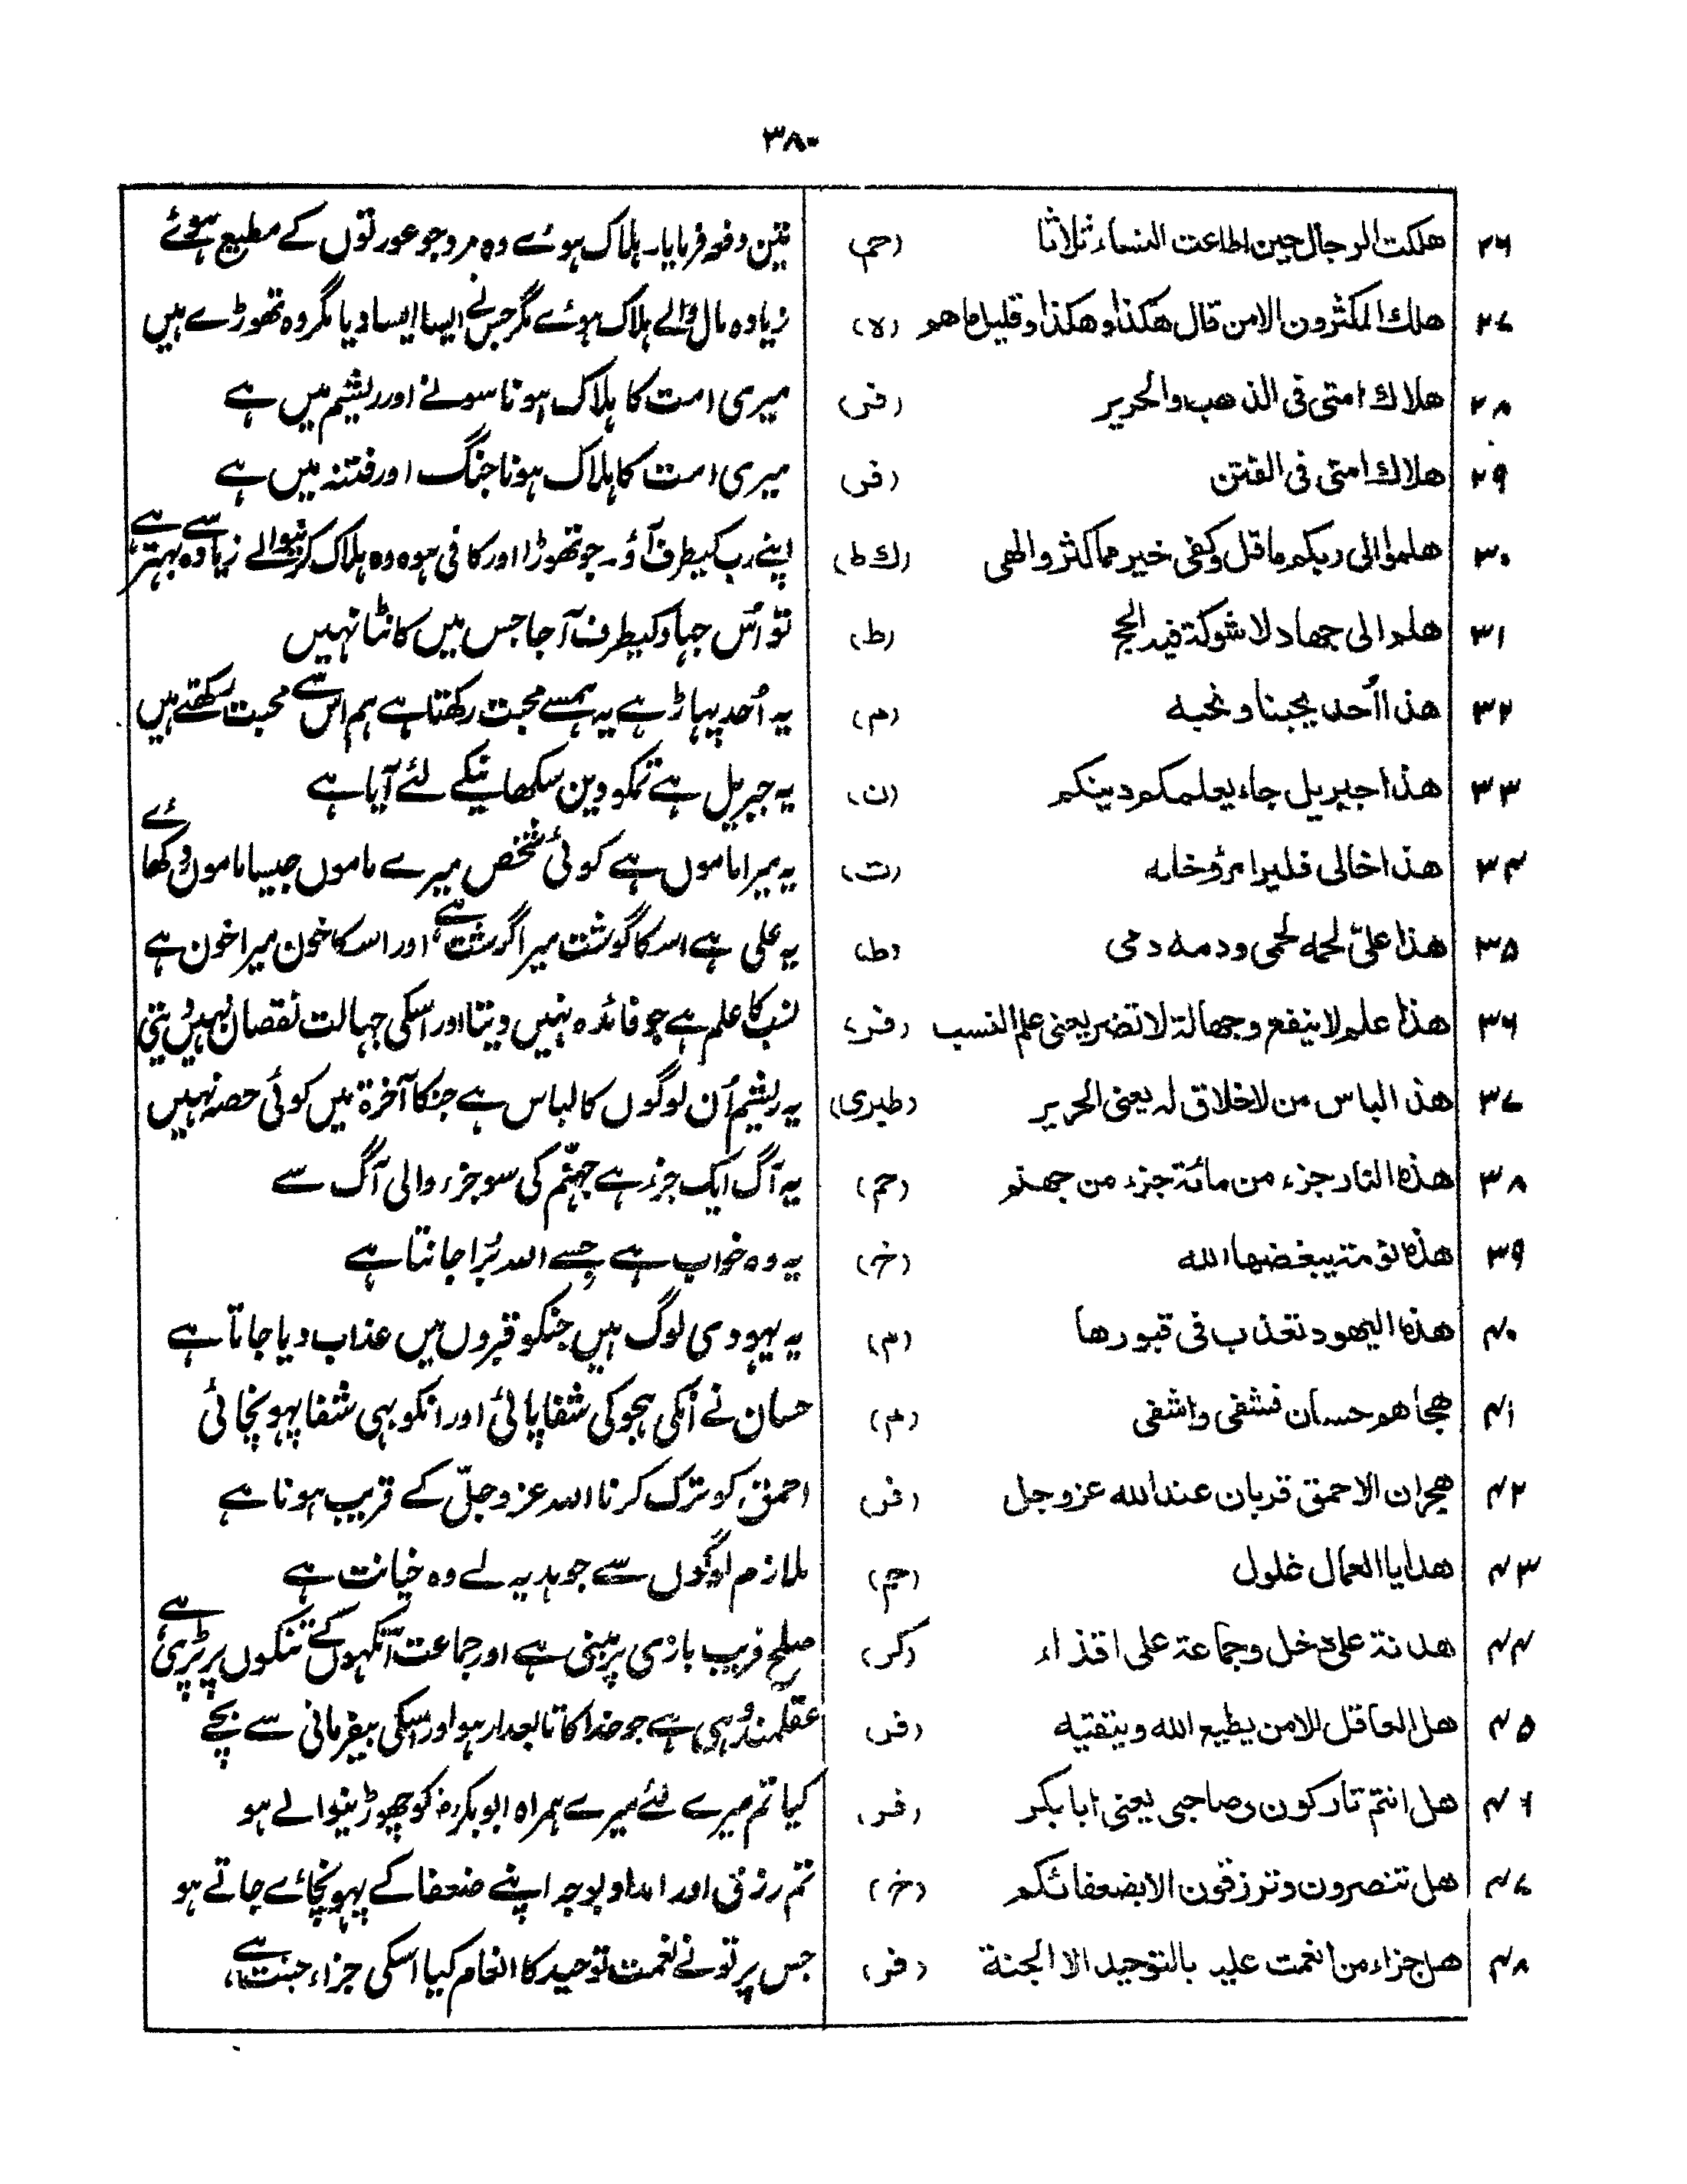 ۳۸۰
۲۶ ھلکت الرجال حین اطاعت النساء ثلاثا (حم) تین دفعہ فرمایا۔ ہلاک ہوئے وہ مرد جو عورتوں کے مطیع ہوئے
۲۷ ھلك المکثرون الامن قال ھکذا وھکذا وقلیل ماھم (ہ) زیادہ مال والے ہلاک ہوئے مگر جس نے ایسا ایسا دیا مگر وہ تھوڑے ہیں
۲۸ ھلاك امتی فی الذھب والحریر (فر) میری امت کا ہلاک ہونا سونے اور ریشیم میں ہے
۲۹ ھلاك امتی فی الفتن (فر) میری امت کا ہلاک ہونا جنگ اور فتنہ میں ہے
۳۰ ھلموا الی ربکم ماقل وکفی خیر مماکثر والھی (ك ط) اپنے رب کیطرف آؤ۔ جو تھوڑا اور کافی ہو وہ ہلاک کرنیوالے زیادہ سے بہتر ہے
۳۱ ھلم الی جھاد لا شوکة فیہ الحج (ط) تو اُس جہاد کیطرف آجا جس میں کانٹا نہیں
۳۲ ھذا اُحد یحبنا ونحبه (م) یہ اُحد پہاڑ ہے یہ ہمسے محبت رکھتا ہے ہم اس سے محبت رکھتے ہیں
۳۳ ھذا جبریل جاء یعلمکم دینکم (ن) یہ جبریل ہے تمکو دین سکھانیکے لئے آیا ہے
۳۴ ھذا خالی فلیرا مرؤ خاله (ت) یہ میرا ماموں ہے کوئی شخص میرے ماموں جیسا ماموں دکھائے
۳۵ ھذا علیّ لحمه لحمی ودمه دمی (ط) یہ علی ہے اسکا گوشت میرا گوشت ہے، اور اسکا خون میرا خون ہے
۳۶ ھذا علم لا ینفع وجھالة لا تضر یعنی علم النسب (فر) نسب کا علم ہے جو فائدہ نہیں دیتا اور اسکی جہالت نقصان نہیں دیتی
۳۷ ھذا لباس من لاخلاق لہ یعنی الحریر (طبری) یہ ریشم اُن لوگوں کا لباس ہے جنکا آخرة میں کوئی حصہ نہیں
۳۸ ھذہ النار جزء من مائة جزء من جھنم (حم) یہ آگ ایک جزء ہے جہنّم کی سو جزء والی آگ سے
۳۹ ھذہ نومة یبغضھا الله (خ) یہ وہ خواب ہے جسے اللہ بُرا جانتا ہے
۴۰ ھذہ الیھود تعذب فی قبورھا (م) یہ یہودی لوگ ہیں جنکو قبروں میں عذاب دیا جاتا ہے
۴۱ ھجاھم حسان فشفی واشفی (م) حسان نے اُنکی ہجو کی شفا پائی اور انکو بہی شفا پہونچائی
۴۲ ھجران الاحمق قربان عند الله عزوجل (فر) احمق کو ترک کرنا اللہ عزوجلّ کے قریب ہونا ہے
۴۳ ھدایا العمال غلول (حم) ملازم لوگوں سے جو ہدیہ لے وہ خیانت ہے
۴۴ ھدنة علی دخل وجماعة علی اقذاء (کر) صلح فریب بازی پر مبنی ہے اور جماعت آنکہوں کے تنکوں پر پڑی ہے
۴۵ ھل العاقل الامن یطیع الله ویتقیه (فر) عقلمند وہی ہے جو خدا کا تابعدار ہو اور اسکی بیفرمانی سے بچے
۴۶ ھل انتم تارکون لی صاحبی یعنی ابا بکر (فر) کیا تم میرے لئے میرے ہمراہ ابو بکرؓ کو چھوڑینوالے ہو
۴۷ ھل تنصرون وترزقون الا بضعفائکم (خ) تم رزق اور امداد بوجہ اپنے ضعفا کے پہونچائے جاتے ہو
۴۸ ھل جزاء من انعمت علیہ بالتوحید الا الجنة (فر) جس پر تو نے نعمت توحید کا انعام کیا اسکی جزاء جنت ہے،